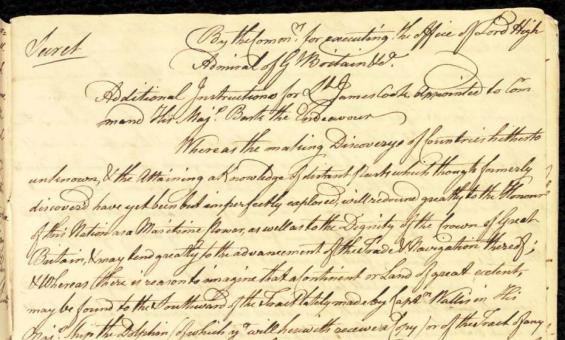 Secret
By the Commrs. for executing the Office of Lord High
Admiral of Gt. Britain &ca.
Additional Instructions for Lt. James Cook, Appointed to Com
mand His Majs. Bark the Endeavour
Whereas the making Discoverys of Countries hitherto
unknown, & the Attaining a Knowledge of distant Parts which though formerly
discover'd have yet been but imperfectly explored, will redound greatly to the Honour
of this Nation as a Maritime Power, as well as to the Dignity of the Crown of Great
Britain, & may tend greatly to the advancement of the Trade & Navigation thereof;
& Whereas there is reason to imagine that a Continent or Land of great extent,
may be found to the Southward of the Tract lately made by Captn. Wallis in His
Majs. Ship the Dolphin (of which you will herewith receive a Copy) or of the Tract of any